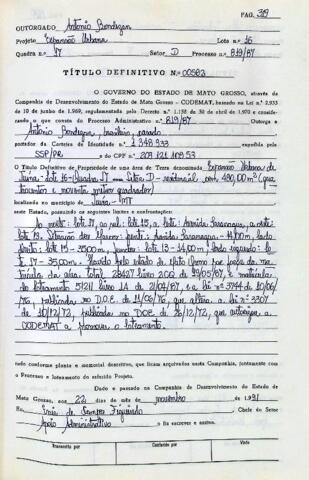 PAG. 39
OUTORGADO Antonio Bondezan
Projeto Expansão Urbana Lote n.o 16
Quadra n.o 17 Setor, D Processo n.o 819/87
TÍTULO DEFINITIVO N.o 00583
O GOVERNO DO ESTADO DE MATO GROSSO, através da
Companhia de Desenvolvimento do Estado de Mato Grosso - CODEMAT, baseado na Lei n.o 2.933
de 10 de junho de 1.969, regulamentada pelo Decreto n.o 1.138 de 30 de abril de 1.970 e considerando
o que consta do Processo Administrativo n.o 819/87 Outorga a
Antonio Bondezan, brasileiro, casado
portador da Carteira de Identidade n.o 1 348 933 expedida
SSP/PR e do CPF n.o 209 121 109 53
O Título Definitivo de Propriedade de uma área de Terra denominada Expansão Urbana de
Juína, lote 16 - Quadra 17 - Setor D - residencial com 490,00 m² (quatrocentos
e noventa metros quadrados)
localizada no município de Juína - MT
neste Estado, possuindo os seguintes limites e confrontações:
Ao norte: lote 17, ao sul: lote 15, a leste: Avenida
lote 13. frente: Avenida - 14,00m, lado
direito: lote 15 - 35,00m, fundos: lote 13 - 14,00m, lado esquerdo: lote
17 - 35.00m. Havido pelo Estado de Mato Grosso por força da matrícula
da área total 28427 livro 20Q de 29/05/87, e matrícula
do loteamento 51211 livro 1A de 21/04/87, e a lei nº 3744 de 10/06/
76, publicada no D.O.E. de 11/06/76, que altera a lei nº 3307
de 18/12/72, publicada no DOE de 26/12/72, que autoriza a
CODEMAT a promover o loteamento.
tudo conforme planta e memorial descritivo, que ficam arquivados nesta Companhia, juntamente com
o Processo e loteamento do referido Projeto.
Dado e passado na Companhia de Desenvolvimento do Estado de
Mato Grosso, aos 22 dias do mês de novembro de 1.991
Eu, de Campos Figueiredo Chefe do Setor
Apoio Administrativo o fiz escrever e assino.
Transcrito por Conferido por Visto